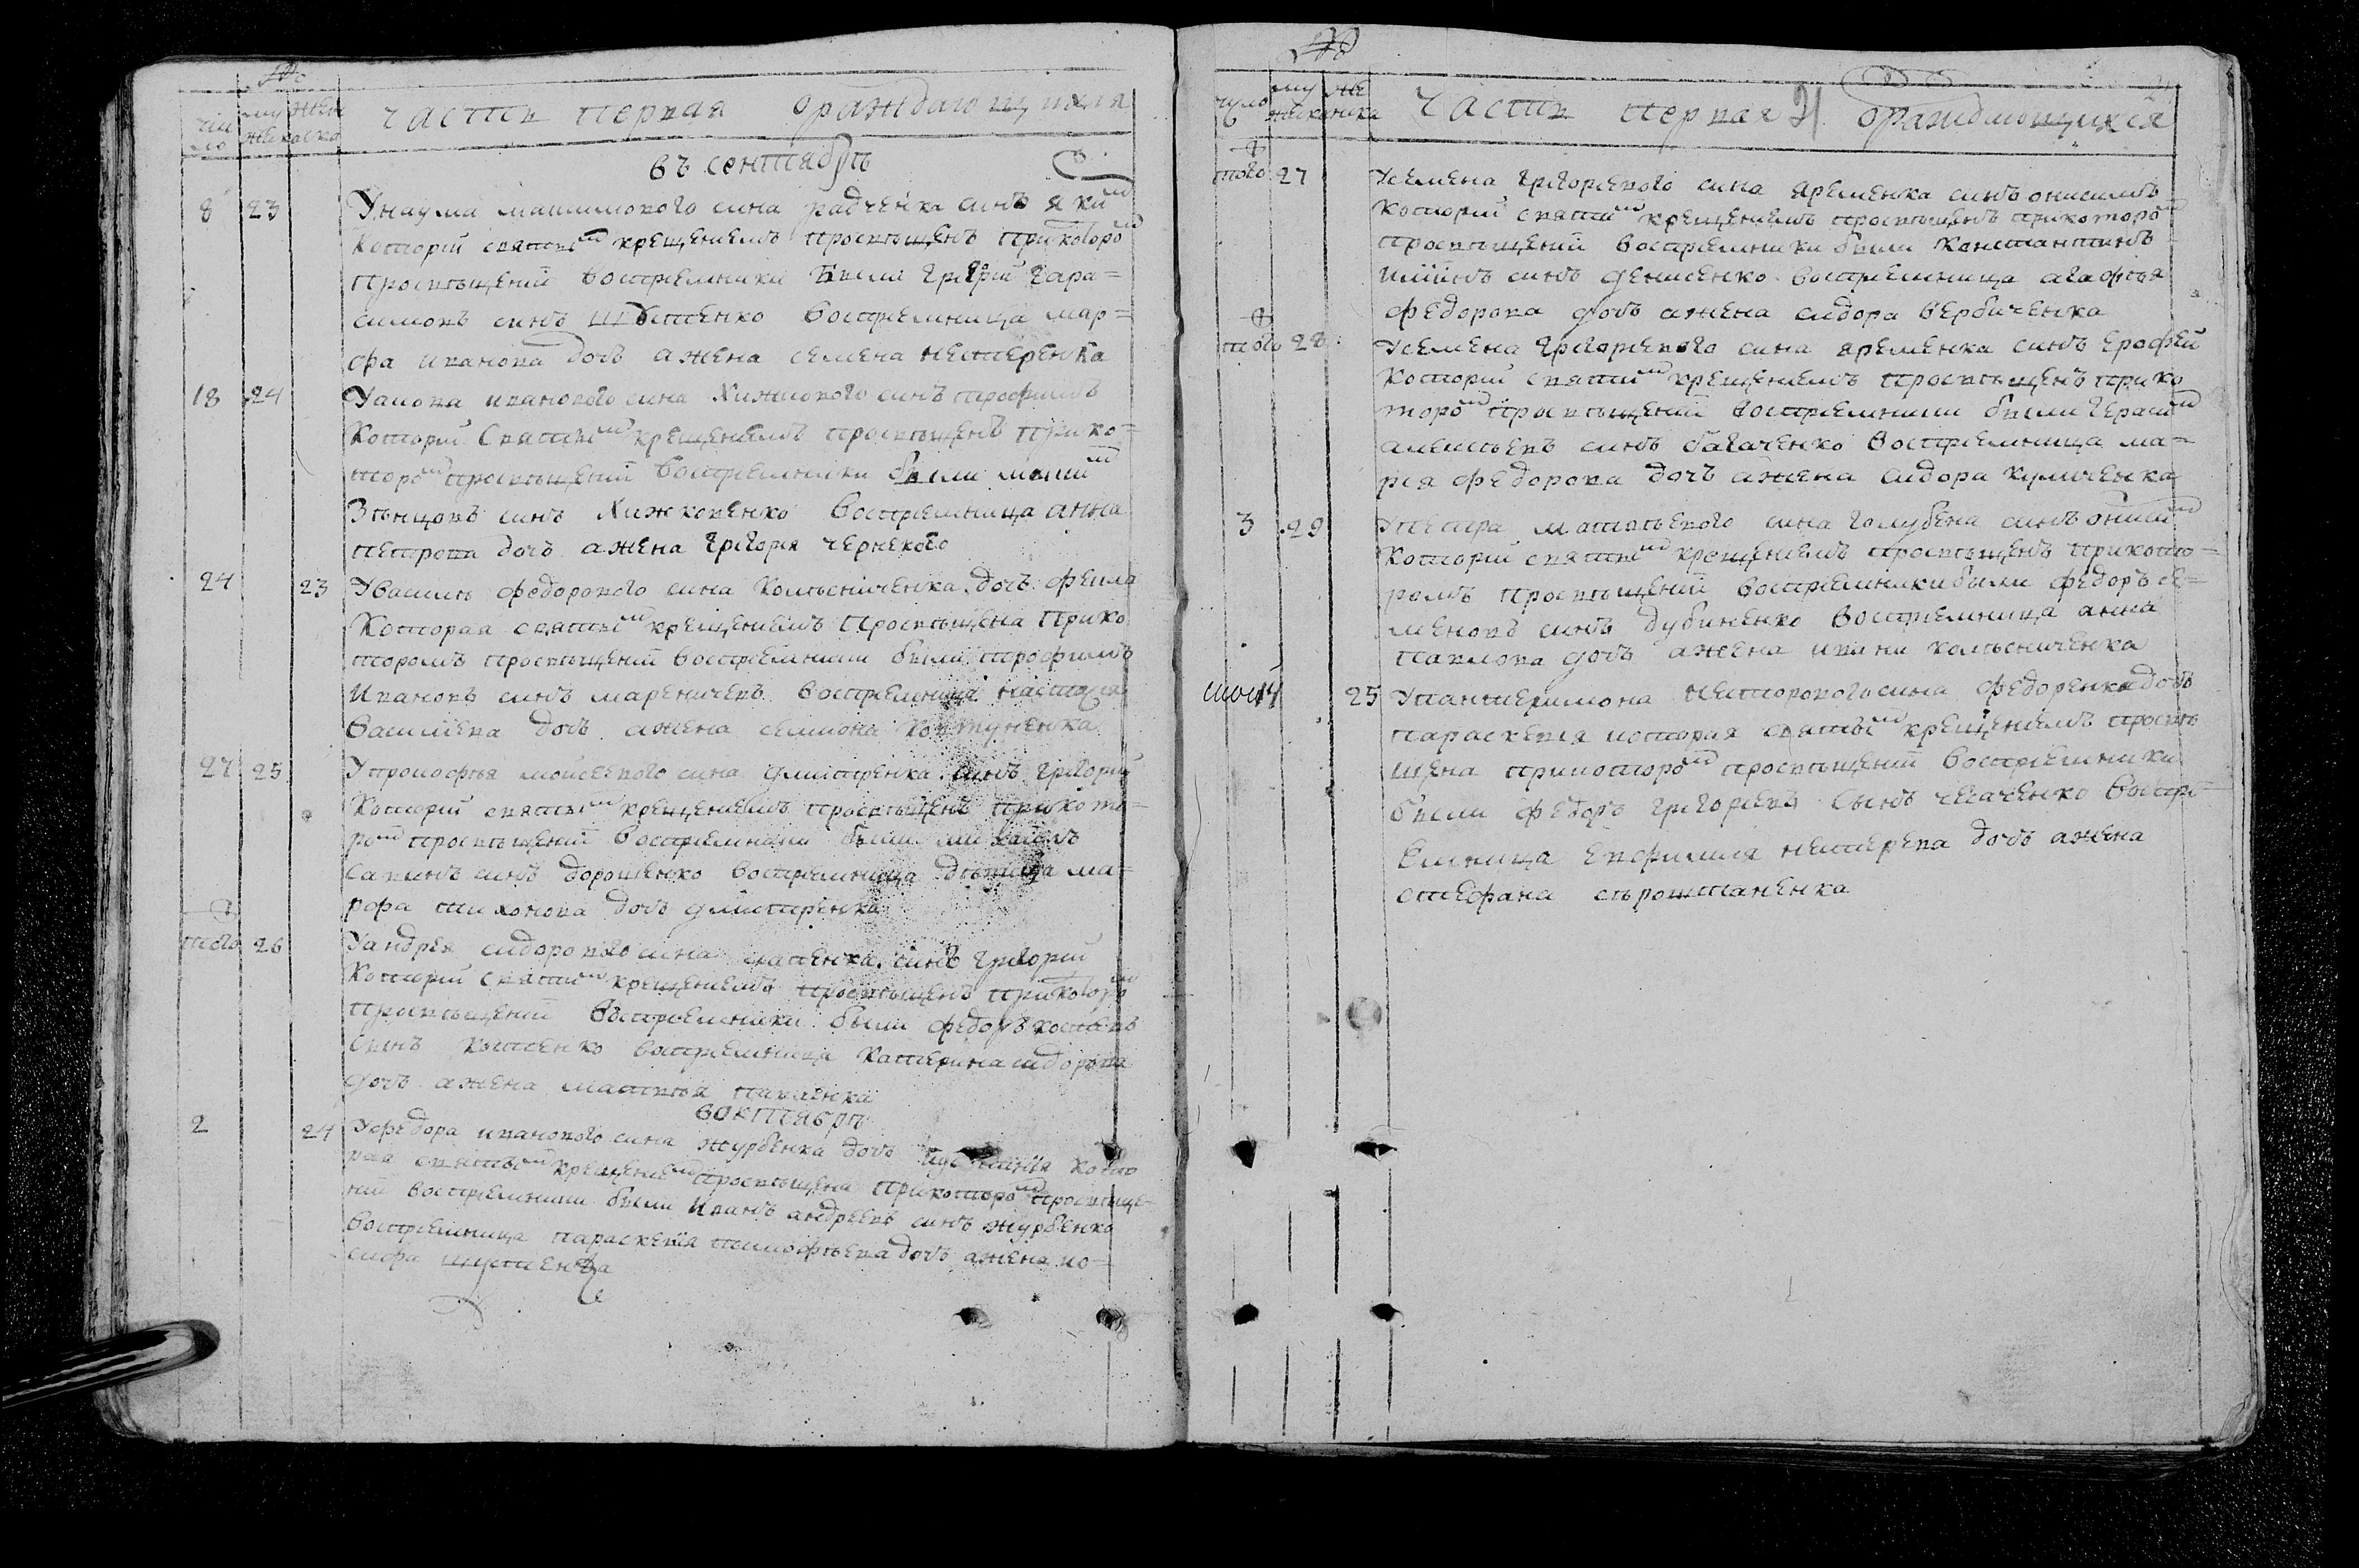 чис му жен
ло жеска ска
часть первая ораждающихся
въ сентабрѣ
8 23 Унаума максимового сина радченка синъ яким
Которїй святым крещениемъ просвѣщенъ прикотором
просвѣщенїй Воспрїемники были григрїй гара=
симовъ синъ Воспрїемница мар=
фа иванова дочъ ажена семена нестеренка
18 24 иванового сина синъ трофимъ
Которїй Святым крещениемъ просвѣщенъ прико=
тором просвѣщенїй Воспрїемники были
синъ Воспрїемница анна
петрова дочъ ажена григория чернекого
24 23 Увасилѣ федорового сина колѣсниченка дочъ фекла
Которая святым крещениемъ просвѣщена прико
торомъ просвѣщенїй воспрїемники были трофимъ
Ивановъ синъ мареничевъ воспрїемница
Василїева дочъ ажена семиона ковтуненка
27 25 моисеевого сина дмитренка синъ григорїй
Которїй святым крещениемъ просвѣщенъ прикото=
ром просвѣщенїй воспрїемники были
Савинъ синъ дорошенко воспрїемница дѣвица ма=
рфа тихонова дочъ дмитренка
того 26 Уандрея сидорового сина синъ григорїй
Которїй святим крещениемъ просвѣщенъ прикотором
просвѣщенїй Воспрїемники были федоръ
синъ костенко воспрїемница катерина сидорова
дочъ ажена матвѣя павленка
воктября
2 24 Уфедора иванового сина журбенка дочъ кото
рая святым крещением просвѣщена прикотором просвѣще=
нїй воспрїемники были Иванъ андреевъ синъ журбенко
воспрїемница параскевїя тимофѣева дочъ ажена ио=
сифа шустенка
число му же
жеска нска
Часть первая Н ораждающихся
того 27 Усемена григориевого сина яременка синъ онисимъ
Которїй святим крещениемъ просвѣщенъ прикотором
просвѣщенїй воспрїемники были Константинъ
синъ денисенко воспрїемница агафѣя
федорова дочъ ажена сидора вербиченка
того 28 Усемена григориевого сина яременка синъ Ерофей
Которїй святим крещениемъ просвѣщенъ прико
тором просвѣщенїй воспрїемники были герасим
алексѣевъ синъ багаченко Воспрїемница ма=
рия федорова дочъ ажена сидора куличенка
3 29 Упетра матвѣевого сина голубена синъ онисим
Которїй святым крещениемъ просвѣщенъ прикото=
ромъ просвѣщенїй воспрїемники были федоръ се=
меновъ синъ дубиненко воспрїемница анна
павлова дочъ ажена колѣсниченка
25 Упантелимона несторового сина федоренка дочъ
параскевия которая святым крещениемъ просвѣ
щена прикотором просвѣщенїй воспрїемники
были федоръ григориевъ Сынъ чегаченко воспрї=
емница Евфимия нестерева дочъ ажена
стефана сѣроштаненка